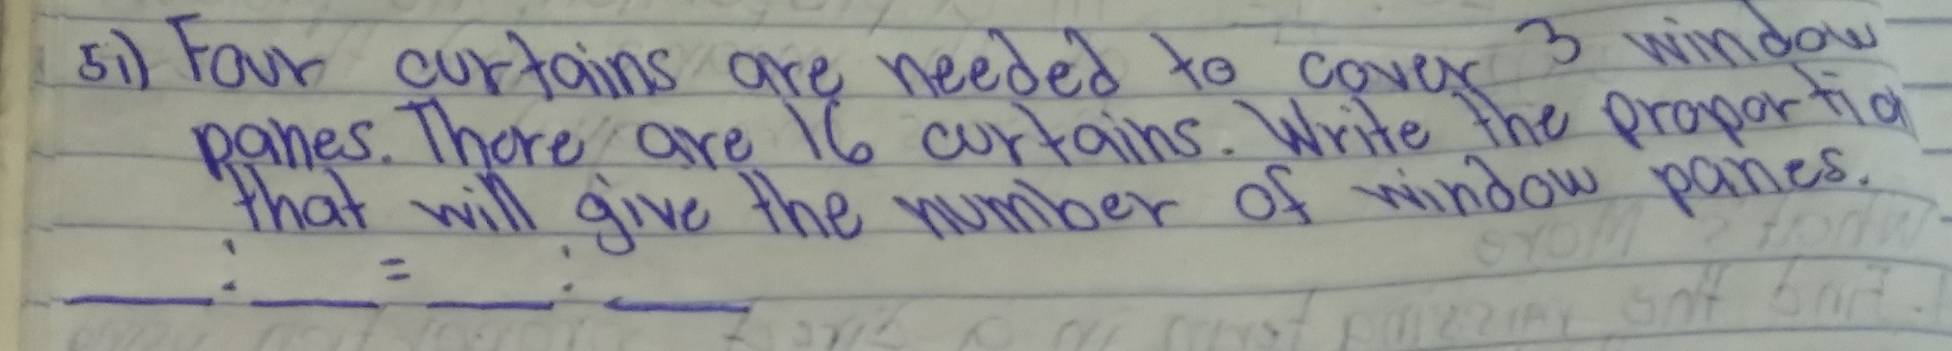 5.) Four curtains are needed to cover 3 window
panes. There are 16 curtains. Write the proportio
that will give the number of window panes.
___ : ___ = ___ : ___